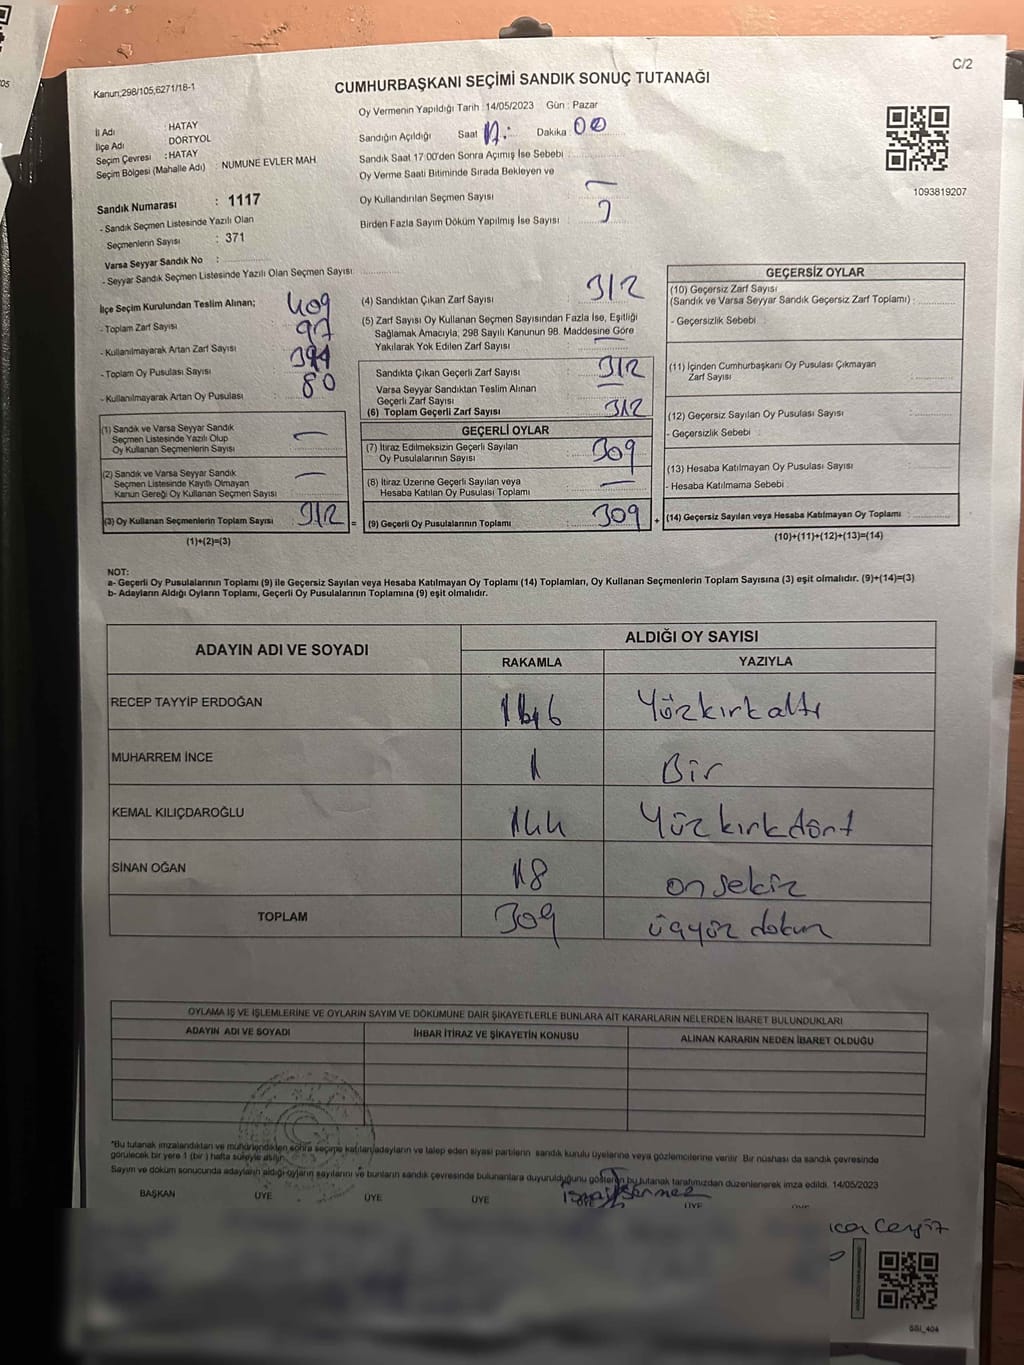 C/2
Kanun;298/105,6271/18-1
CUMHURBAŞKANI SEÇİMİ SANDIK SONUÇ TUTANAĞI
Oy Vermenin Yapıldığı Tarih :14/05/2023 Gün : Pazar
İl Adı : HATAY
İlçe Adı DÖRTYOL
Seçim Çevresi : HATAY
Seçim Bölgesi (Mahalle Adı) NUMUNE EVLER MAH
Sandığın Açıldığı Saat Dakika : 00
Sandık Saat 17:00'den Sonra Açımış İse Sebebi :
Oy Verme Saati Bitiminde Sırada Bekleyen ve
Oy Kullandırılan Seçmen Sayısı : —
Birden Fazla Sayım Döküm Yapılmış İse Sayısı :
1093819207
Sandık Numarası : 1117
- Sandık Seçmen Listesinde Yazılı Olan
Seçmenlerin Sayısı : 371
Varsa Seyyar Sandık No :
- Seyyar Sandık Seçmen Listesinde Yazılı Olan Seçmen Sayısı:
İlçe Seçim Kurulundan Teslim Alınan;
- Toplam Zarf Sayısı : 409
- Kullanılmayarak Artan Zarf Sayısı : 97
- Toplam Oy Pusulası Sayısı :
- Kullanılmayarak Artan Oy Pusulası : 80
(1) Sandık ve Varsa Seyyar Sandık
Seçmen Listesinde Yazılı Olup
Oy Kullanan Seçmenlerin Sayısı : —
(2) Sandık ve Varsa Seyyar Sandık
Seçmen Listesinde Kayıtlı Olmayan
Kanun Gereği Oy Kullanan Seçmen Sayısı : —
(3) Oy Kullanan Seçmenlerin Toplam Sayısı : 312 =
(1)+(2)=(3)
(4) Sandıktan Çıkan Zarf Sayısı : 312
(5) Zarf Sayısı Oy Kullanan Seçmen Sayısından Fazla İse, Eşitliği
Sağlamak Amacıyla, 298 Sayılı Kanunun 98. Maddesine Göre
Yakılarak Yok Edilen Zarf Sayısı : —
Sandıkta Çıkan Geçerli Zarf Sayısı : 312
Varsa Seyyar Sandıktan Teslim Alınan
Geçerli Zarf Sayısı : —
(6) Toplam Geçerli Zarf Sayısı : 312
GEÇERLİ OYLAR
(7) İtiraz Edilmeksizin Geçerli Sayılan
Oy Pusulalarının Sayısı : 309
(8) İtiraz Üzerine Geçerli Sayılan veya
Hesaba Katılan Oy Pusulası Toplamı : —
(9) Geçerli Oy Pusulalarının Toplamı : 309 +
GEÇERSİZ OYLAR
(10) Geçersiz Zarf Sayısı
(Sandık ve Varsa Seyyar Sandık Geçersiz Zarf Toplamı) :
- Geçersizlik Sebebi :
(11) İçinden Cumhurbaşkanı Oy Pusulası Çıkmayan
Zarf Sayısı :
(12) Geçersiz Sayılan Oy Pusulası Sayısı :
- Geçersizlik Sebebi :
(13) Hesaba Katılmayan Oy Pusulası Sayısı :
- Hesaba Katılmama Sebebi :
(14) Geçersiz Sayılan veya Hesaba Katılmayan Oy Toplamı :
(10)+(11)+(12)+(13)=(14)
NOT:
a- Geçerli Oy Pusulalarının Toplamı (9) ile Geçersiz Sayılan veya Hesaba Katılmayan Oy Toplamı (14) Toplamları, Oy Kullanan Seçmenlerin Toplam Sayısına (3) eşit olmalıdır. (9)+(14)=(3)
b- Adayların Aldığı Oyların Toplamı, Geçerli Oy Pusulalarının Toplamına (9) eşit olmalıdır.
ADAYIN ADI VE SOYADI ALDIĞI OY SAYISI
RAKAMLA YAZIYLA
RECEP TAYYİP ERDOĞAN 146 Yüzkırkaltı
MUHARREM İNCE 1 Bir
KEMAL KILIÇDAROĞLU 144 Yüzkırkdört
SİNAN OĞAN 18 onsekiz
TOPLAM 309 üçyüz dokuz
OYLAMA İŞ VE İŞLEMLERİNE VE OYLARIN SAYIM VE DÖKÜMÜNE DAİR ŞİKAYETLERLE BUNLARA AİT KARARLARIN NELERDEN İBARET BULUNDUKLARI
ADAYIN ADI VE SOYADI İHBAR İTİRAZ VE ŞİKAYETİN KONUSU ALINAN KARARIN NEDEN İBARET OLDUĞU
*Bu tutanak imzalandıktan ve mühürlendikten sonra seçime katılan adayların ve talep eden siyasi partilerin sandık kurulu üyelerine veya gözlemcilerine verilir. Bir nüshası da sandık çevresinde
görülecek bir yere 1 (bir ) hafta süreyle asılır.
Sayım ve döküm sonucunda adayların aldığı oyların sayılarını ve bunların sandık çevresinde bulunanlara duyurulduğunu gösteren bu tutanak tarafımızdan düzenlenerek imza edildi. 14/05/2023
BAŞKAN ÜYE ÜYE ÜYE ÜYE ÜYE
SSI_404